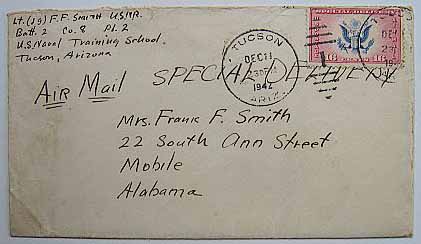 Lt. (jg) F. F. Smith USNR.
Batt. 2 Co. 8 Pl. 2
U.S. Naval Training School.
Tucson, Arizona
TUCSON
DEC 11
1942
ARIZ.
16 CENTS 16
Air Mail
SPECIAL DELIVERY
Mrs. Frank F. Smith
22 South Ann Street
Mobile
Alabama